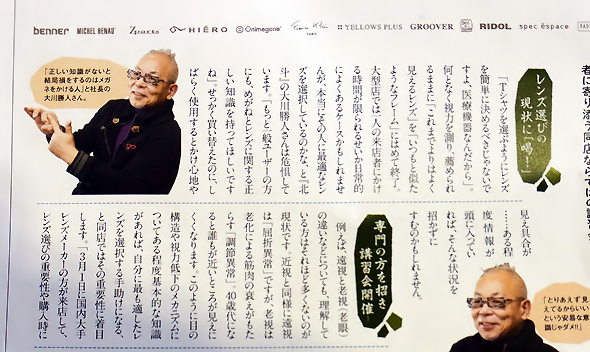 BENNER MICHEL HENAU Zparts HIÉRO Onimegane YELLOWS PLUS GROOVER RIDOL spec éspace
「正しい知識がないと
結局損をするのはメガ
ネをかける人」と社長の
大川勝人さん。
レンズ選びの
現状に「喝！」
「Tシャツを選ぶようにレンズ
を簡単に決めるべきじゃないで
すよ、医療機器なんだから」。
何となく視力を測り、薦められ
るままに「これまでよりはよく
見えるレンズ」を「いつもと似た
ようなフレーム」にはめて終了。
大型店では一人の来店者にかけ
る時間が限られるせいか日常的
によくあるケースかもしれませ
んが、「本当にその人に最適なレン
ズを選択しているのかな」と『北
斗』の大川勝人さんは危惧して
います。「もっと一般ユーザーの方
にも、めがねとレンズに関する正
しい知識を持ってほしいです
ね」。せっかく買い替えたのに、し
ばらく使用するとかけ心地や
見え具合が
……ある程
度情報が
頭に入ってい
れば、そんな状況を
招かずに
すむのかもしれません。
専門の方を招き
講習会開催
例えば、遠視と老視（老眼）
の違いなどについても、理解して
いる方はそれほど多くないのが
現状です。近視と同様に遠視
は「屈折異常」ですが、老視は
老化による筋肉の衰えがもた
らす「調節異常」。40歳代にな
ると誰もが近いところが見えに
くくなります。このように目の
構造や視力低下のメカニズムに
ついてある程度基本的な知識
があれば、自分に最も適したレ
ンズを選択する手助けになる、
と同店ではその重要性に着目
します。「3月1日に国内大手
レンズメーカーの方が来店して、
レンズ選びの重要性や購入時に
「とりあえず見
えてるからいい」
という安易な意
識じゃダメ!!」